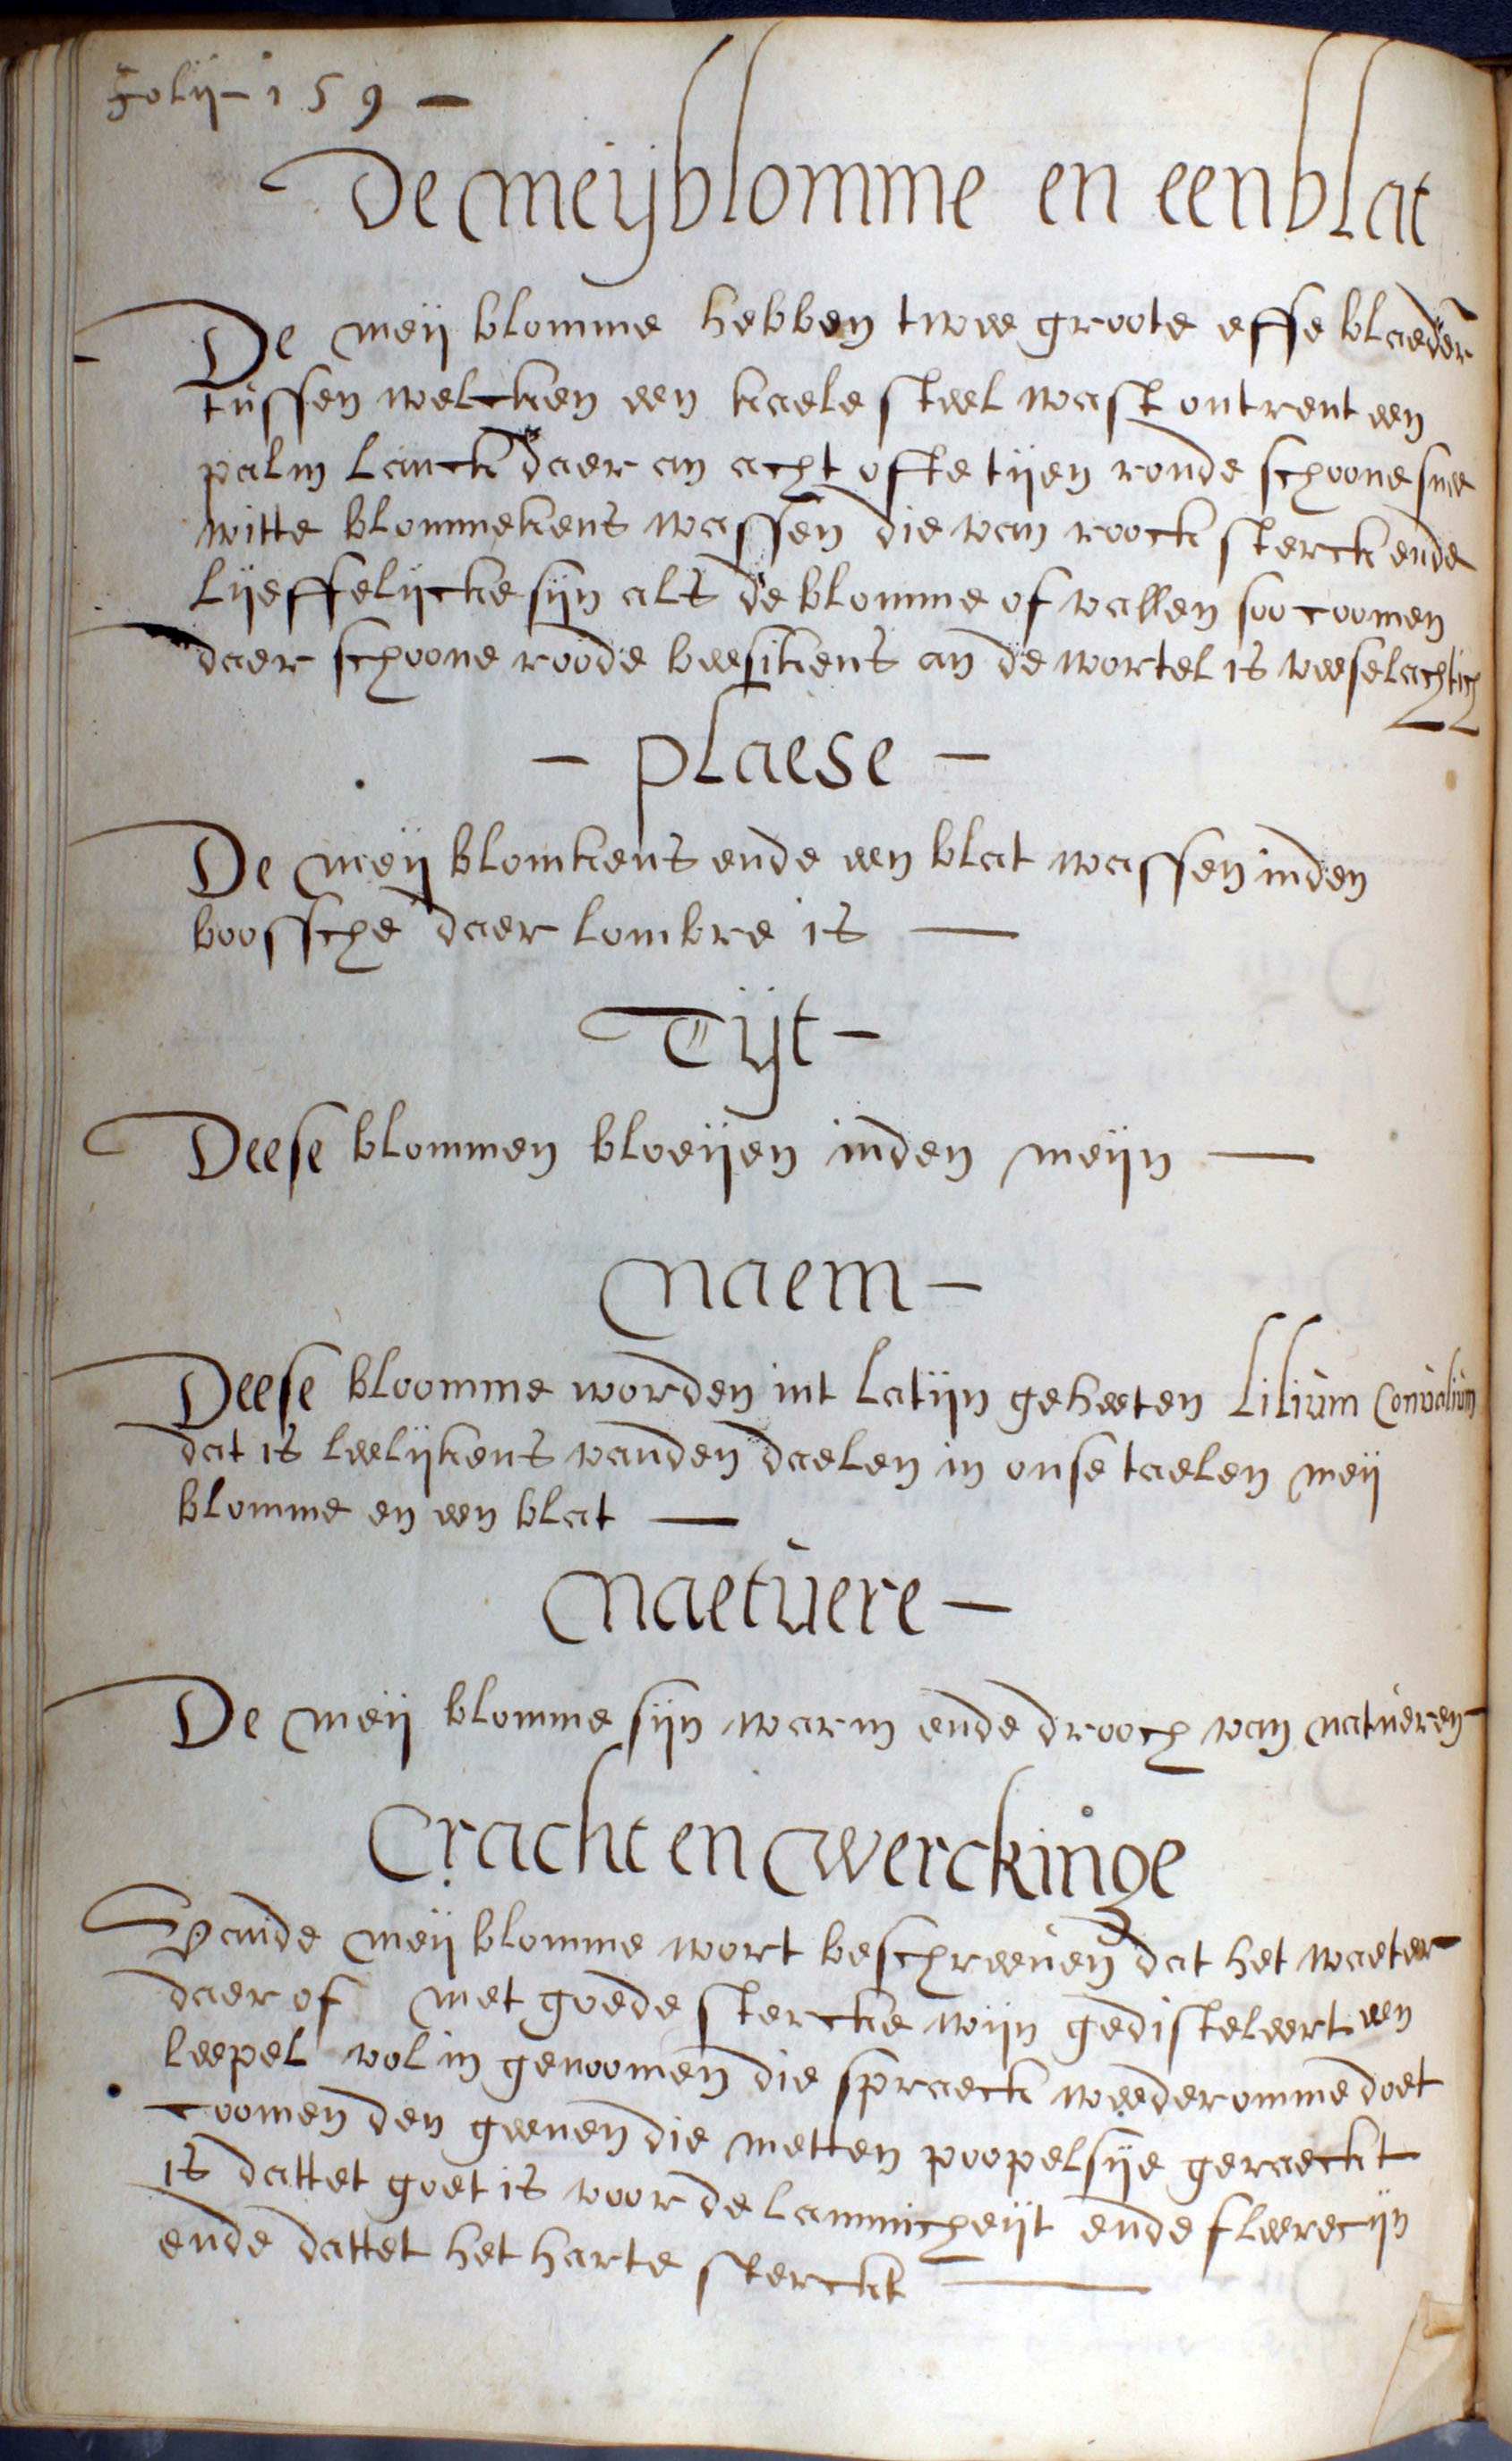 Folij - 159 -
De meijblomme en eenblat
De meij blomme hebben twee groote effe blaeder
tussen welcken een kaele steel wast ontrent een
palm lanck daer an acht ofte tijen ronde schoone snee
witte blommekens wassen die van roock sterck ende
lijeffelijcke sijn als de blomme of vallen soo coomen
daer schoone roode beesikens an de wortel is veeselachtich
- plaese -
De meij blomkens ende een blat wassen inden
boossche daer lombre is —
Tijt -
Deese blommen bloeijen inden meijn —
naem -
Deese bloomme worden int latijn geheeten Lilium Convalium
dat is leelijkens vanden daelen in onse taelen meij
blomme en een blat —
naetuere -
De meij blomme sijn warm ende drooch van natueren -
Cracht en werckinge
Vande meij blomme wort beschreeven dat het waeter
daer of met goede stercke wijn gedisteleert een
leepel vol in genoomen die spraeck weederomme doet
coomen den geenen die metten poopelsije geraeckt
is dattet goet is voor de lammicheijt ende fleerecijn
ende dattet het harte sterckt —